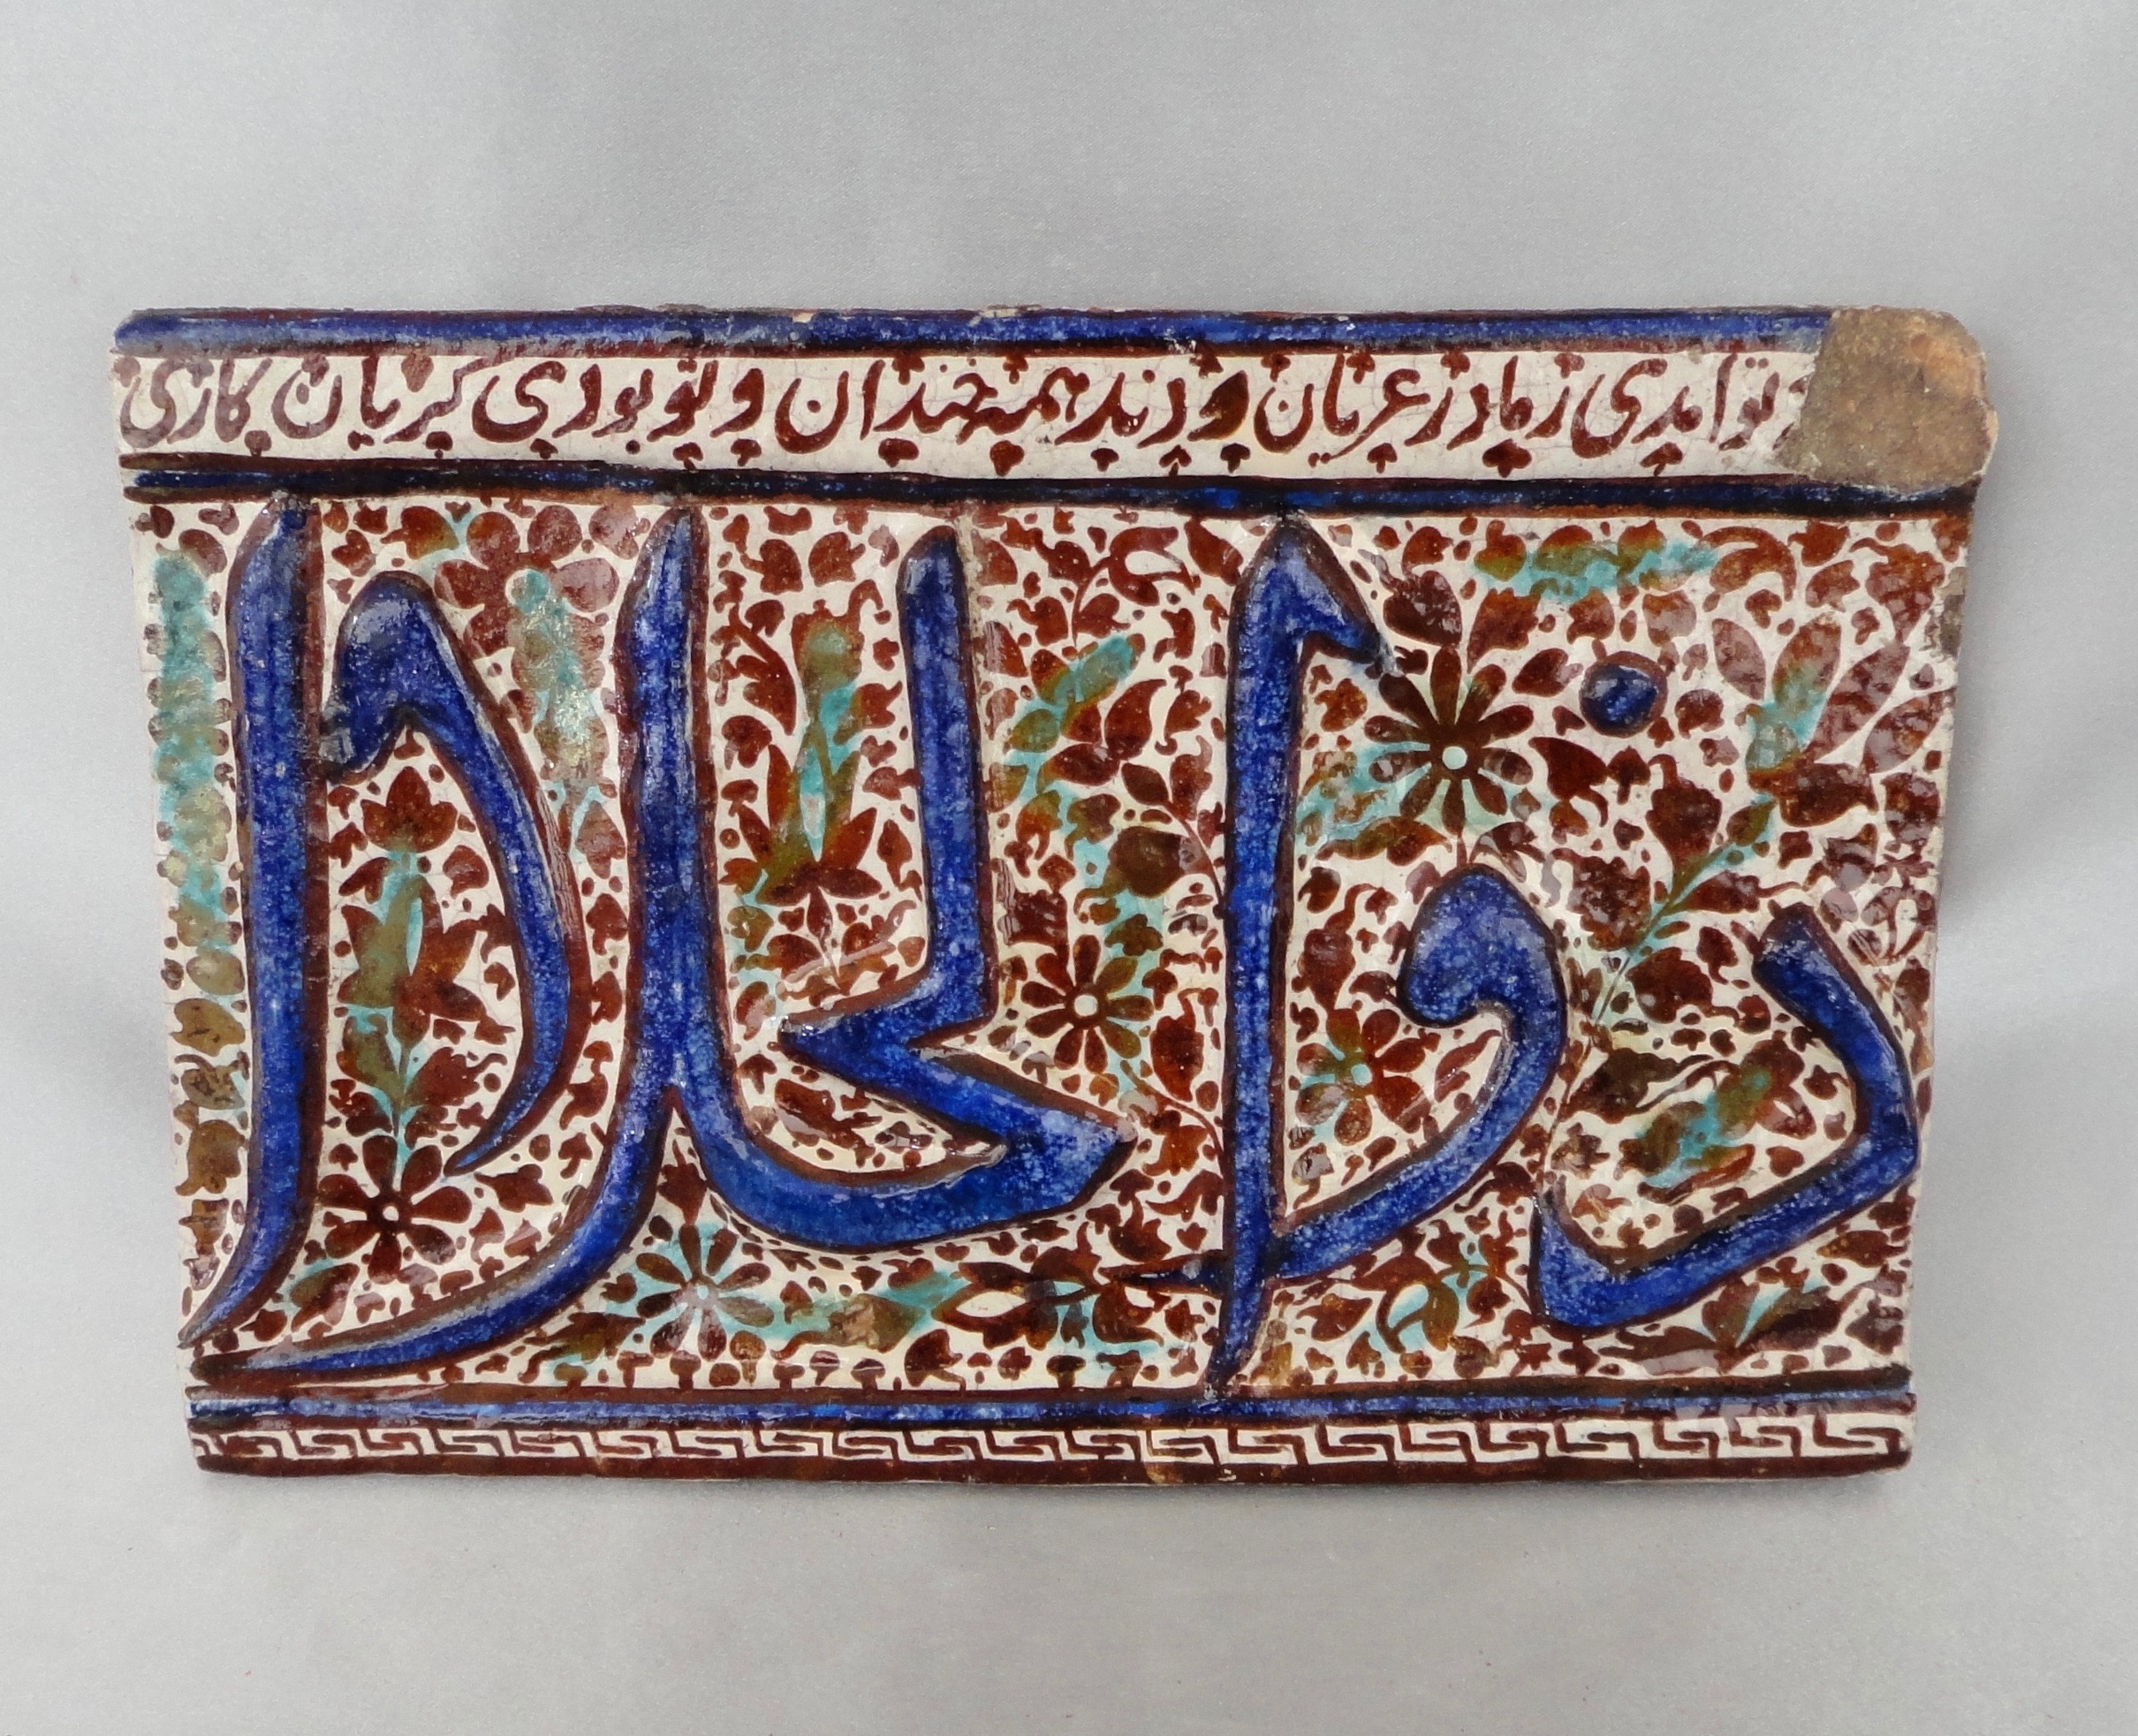 تو امدی ز مادر عریان و دند همه خندان و تو بودی کریان کاری
ذوالجلالا